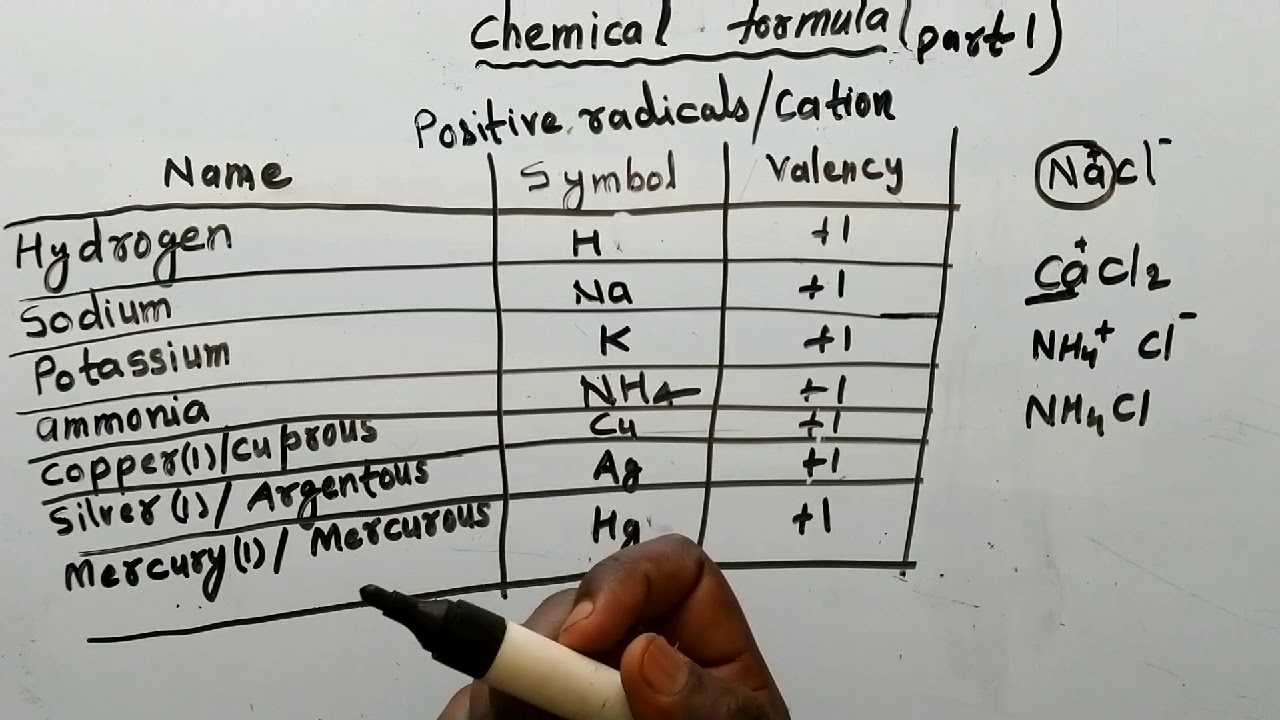 Chemical formula (part 1)
Positive radicals/Cation
Name Symbol Valency
Hydrogen H +1
Sodium Na +1
Potassium K +1
ammonia NH4 +1
Copper(1)/Cuprous Cu +1
Silver(1)/Argentous Ag +1
Mercury(1)/Mercurous Hg +1
Na+Cl-
Ca+Cl2
NH4+ Cl-
NH4Cl